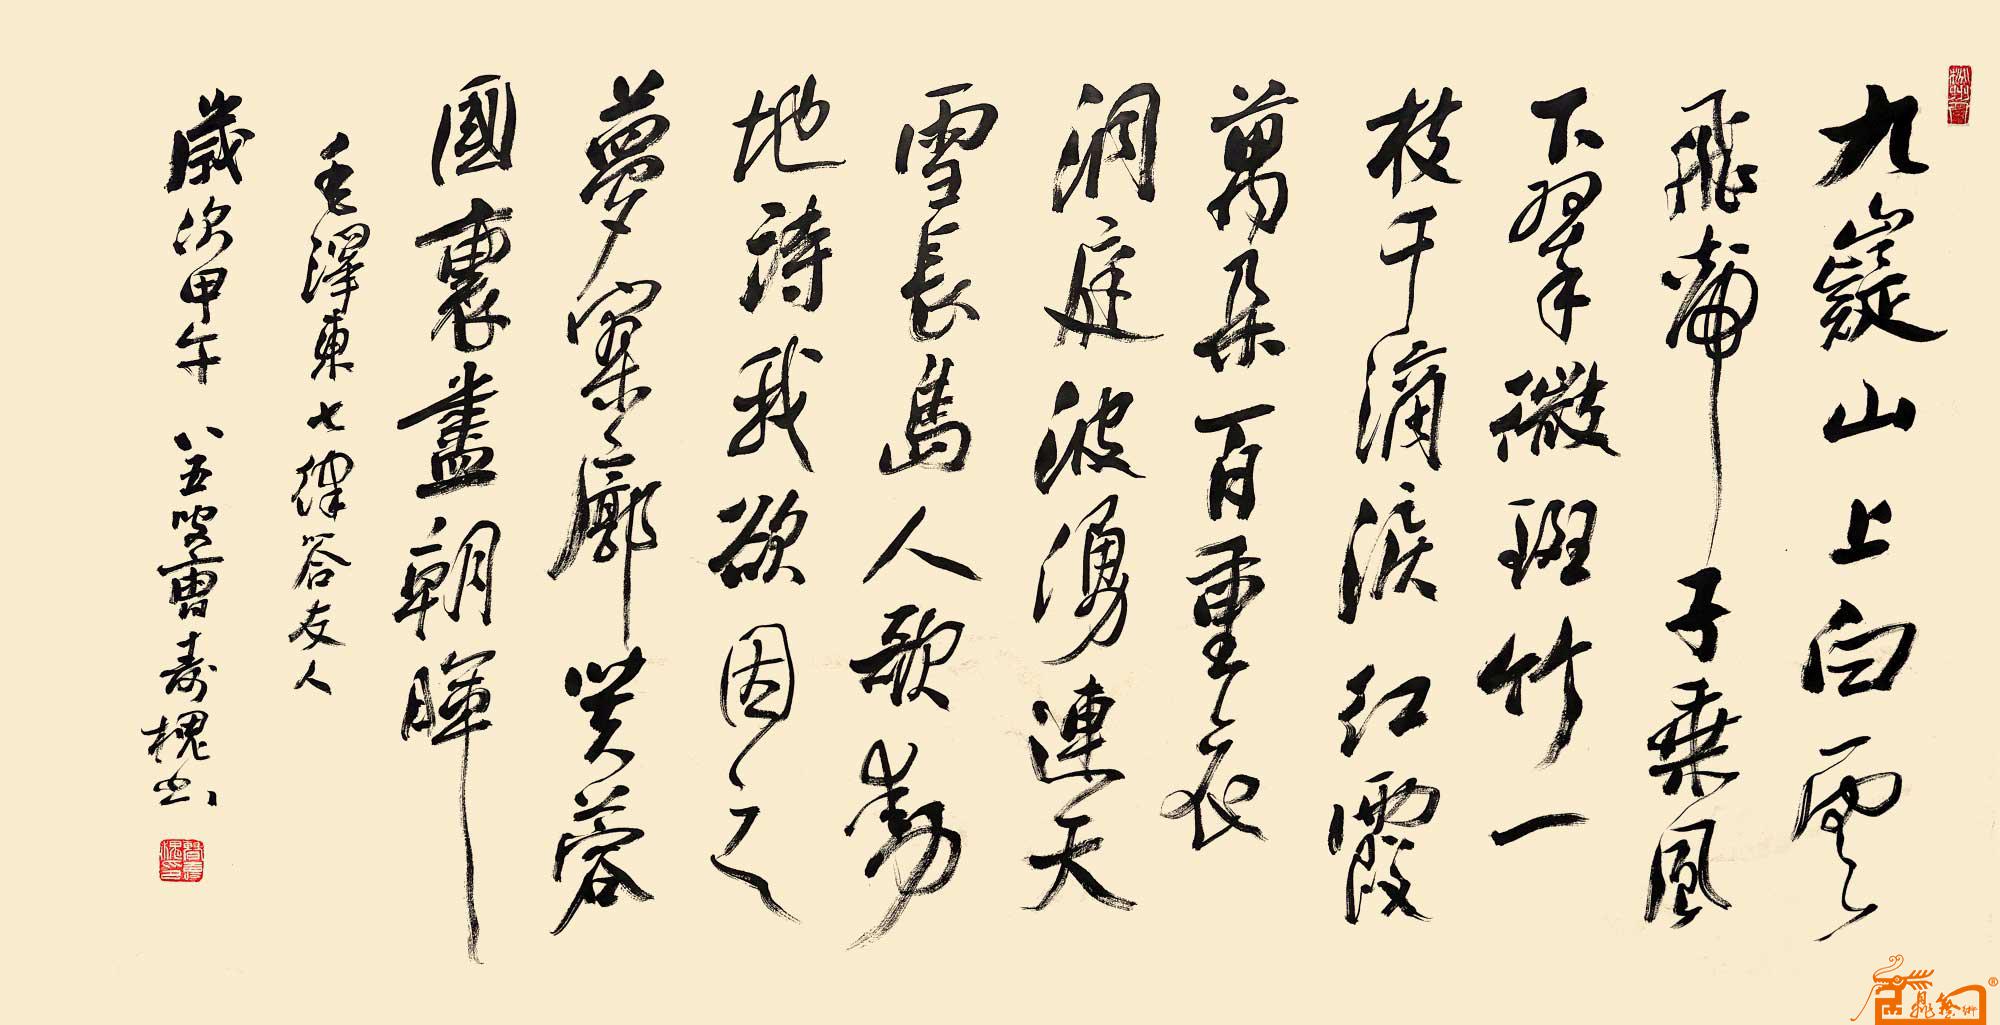 九嶷山上白雲
飛帝子乘風
下翠微斑竹一
枝千滴淚紅霞
萬朵百重衣
洞庭波湧連天
雪長島人歌動
地詩我欲因之
夢寥廓芙蓉
國裏盡朝暉
毛澤東七律答友人
歲次甲午 八五叟曹寿槐书